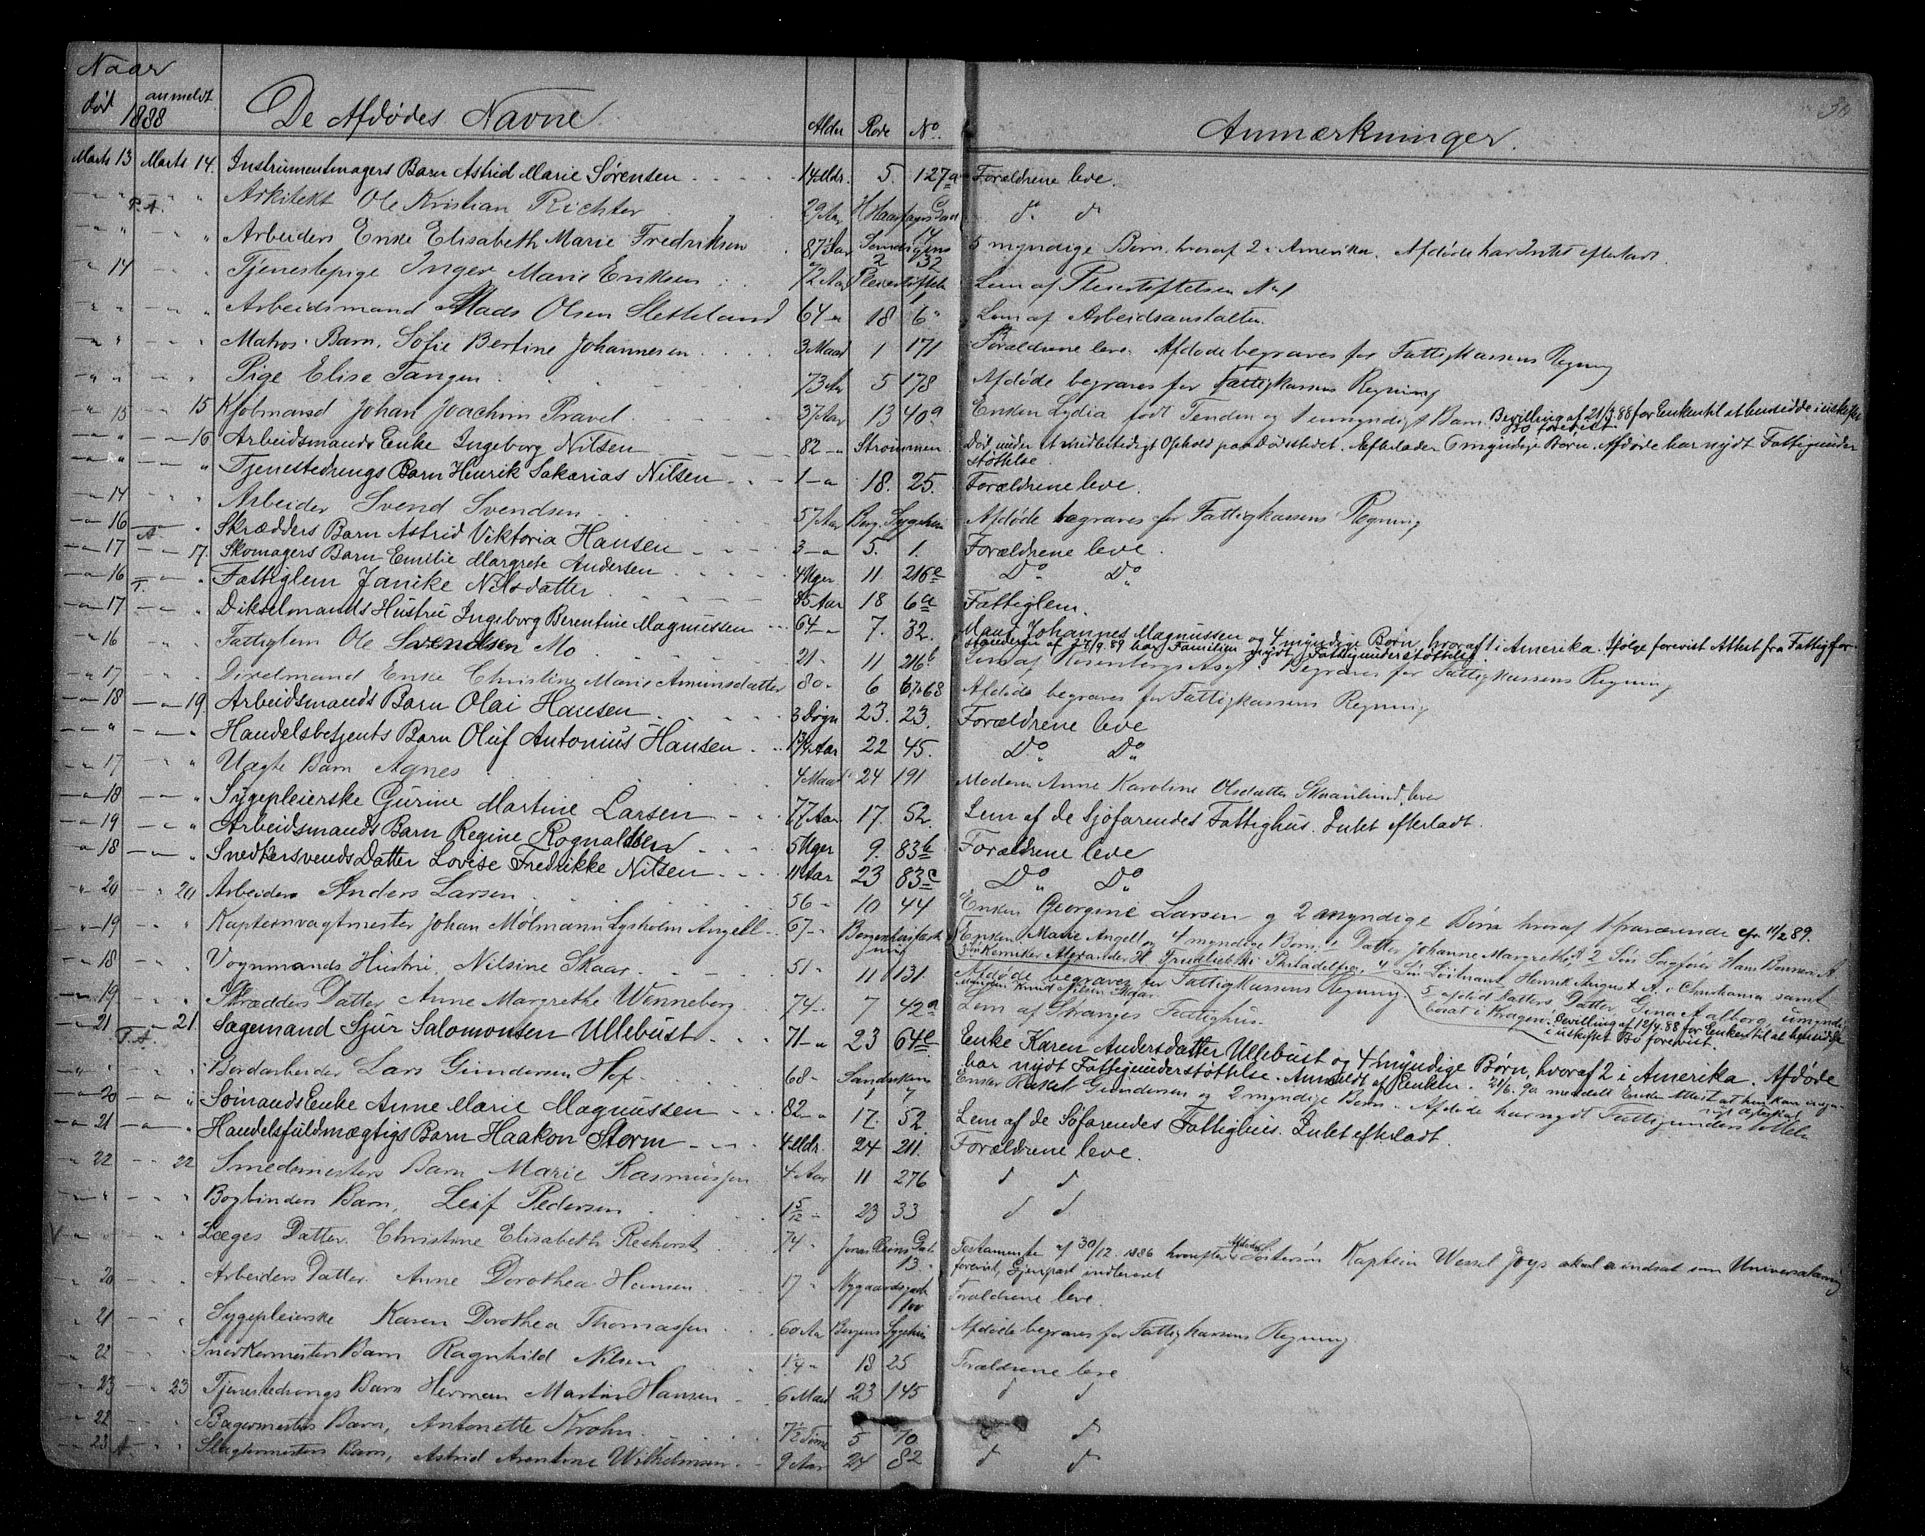 Naar
død anmeldt
1888 De Afdødes Navne Alder Rode No. Anmærkninger. 30
Marts 13 Marts 14. Instrumentmagers Barn Astrid Marie Sørensen 14 Mdr. 5. 127a Forældrene leve.
" " P.A. " " Arkitekt Ole Kristian Richter 29 Aar H Haarfagrs Gad do do
" " " " Arbeiders Enke Elisabeth Marie Fredriksen 87 Aar 14 5 myndige Børn, hvoraf 2 i Amerika. Afdøde har Intet efterladt.
" 14 " " Tjenestepige Inger Marie Eriksen 72 Aar 2 32 Lem af Stiftelsen No 1
" " " " Arbeidsmand Mads Olsen Sletteland 64 " 18 6" Lem af Arbeidsanstalten.
" " " " Matros. Barn. Sofie Bertine Johannesen 3 Maad 1 171 Forældrene leve. Afdøde begraves for Fattigkassens Regning
" " " " Pige Elise Tangen 73 Aar 5 178 Afdøde begraves for Fattigkassens Regning
" 15 " 15 Kjøbmand Johan Joachim Pravel 37 Aar 13 40a Enken Lydia født Tenden og 1 umyndigt Barn. Bevilling af 21/3 88 for Enken til at hensidde i uskiftet
Bo forevist.
" " " 16 Arbeidsmands Enke Ingeborg Nilsen 82 " Strømmen. Død under et midlertidigt Ophold paa Dødsstedet. Efterlader 6 myndige Børn. Afdøde har nydt Fattigunder
støttelse.
" " " " Tjenestedrengs Barn Henrik Sakarias Nilsen 1 " 18. 25. Forældrene leve.
" 14 " " Arbeider Svend Svendsen 57 Aar Berg. Sygehus Afdøde begraves for Fattigkassens Regning
" 16 A. " " Skrædders Barn Astrid Viktoria Hansen 3 " 5. 1. Forældrene leve.
" 17 " 17. Skomagers Barn Emilie Margrete Andersen 4 Uger 11 216e Do Do
" 16 T. " " Fattiglem Janike Nilsdatter 85 Aar 18 6a Fattiglem.
" 17 " " Dikselmands Hustru Ingeborg Berentine Magnussen 64 " 7. 32. Mand Johannes Magnussen og 4 myndige Børn, hvoraf 1 i Amerika. Ifølge forevist Attest fra Fattigfor-
standeren af 27/9. 89 har Familien nydt Fattigunderstøttelse.
" 16 " " Fattiglem Ole Svendsen Mo 21 " 11 216b Lem af Rosenbergs Asyl. Begraves for Fattigkassens Regning
" 17 " " Dixelmand Enke Christine Marie Amunsdatter 80 " 6 68 Afdøde begraves for Fattigkassens Regning
" 18 " 19. Arbeidsmands Barn Olai Hansen 3 Døgn 23. 23. Forældrene leve
" " " " Handelsbetjents Barn Oluf Antonius Hansen 1 3/4 Aar 22 45. Do Do
" 17 " " Uægte Barn Agnes 4 Maad 24 191 Moderen Anne Karoline Olsdatter Skaanlund, lever
" 18 " " Sygepleierske Gurine Martine Larsen 77 Aar 17. 52. Lem af de Sjøfarendes Fattighus. Intet efterladt.
" 19 " " Arbeidsmands Barn Regine Rognaldsen 5 Uger 9. 83b Forældrene leve
" 18 " " Snedkersvends Datter Lovise Fredrikke Nilsen 11 Aar 23 83c Do Do
" 20 " 20 Arbeider Anders Larsen 56 " 10 44 Enken Georgine Larsen og 2 myndige Børn hvoraf 1 fraværende 11/2 89.
" 19 " " Kapteinvagtmester Johan Mølmann Lysholm Angell 67 " Enken Marie Angell og 4 myndige Børn, 1 Datter Johanne Margrethe, 2 Søn Sagfører Hans Bonnevi A.
3 Kemiker Alexander H. Philadelfia, 4 Søn Løitnant Henrik August A. i Christiania samt
" 18 " " Vognmands Hustru, Nilsine Skaar 51 " 11 131. Afdøde begraves for Fattigkassens Regning. 5 afdød Datters Datter, Gina Aalborg, umyndig
Manden Knud Nilsen Skaar bosat i Kragerø. Bevilling af 12/4. 88 for Enken til at hensidde
i uskiftet Bo forevist.
" 19 " " Skrædders Datter Anne Margrethe Wenneberg 74 " 7 42a Lem af Stranges Fattighus.
" 21 T.A. " 21. Sagemand Sjur Salomonsen Ullebust 71 " 23 64c Enke Karen Andersdatter Ullebust og 4 myndige Børn, hvoraf 2 i Amerika. Afdøde
har nydt Fattigunderstøttelse. Anmeldt af Enken.
" " " " Bordarbeider Lars Gundersen Hof 68 " Sandviken 1 7 Enken Gundersen og 2 myndige Børn. Afdøde har nydt Fattigunderstøttelse
" 20 " " Sømands Enke Anne Marie Magnussen 82 " 17. 52. Lem af de Søfarendes Fattighus. Intet efterladt.
" 21 " " Handelsfuldmægtigs Barn Haakon Storm 4 Mdr. 24 211. Forældrene leve.
" 22 " 22 Smedmesters Barn Marie Rasmussen 4 Aar 11 276 do do
" " " " Bogbinders Barn, Leif Pedersen 1 5/12 " 23 33 do do
V " " " " Læges Datter Christine Elisabeth Reehorst 74 " Jonas Reins Gade 13. Testamente af 30/12 1886 hvorefter Afdødes Søstersøn Kaptein Wessel Joys indsat som Universalarving
forevist, Gjenpart indleveret
" 20 " " Arbeiders Datter Anne Dorothea Hansen 17 " Nygaardsgade 100 Forældrene leve.
" 21 " " Sygepleierske Karen Dorothea Thomassen 60 Aar Bergens Sygehus Afdøde begraves for Fattigkassens Regning.
" 22 " " Snedkermesters Barn Ragnhild Nilsen 1/4 " 18 25 Forældrene leve
" 23 " 23 Tjenestedrengs Barn Herman Martin Hansen 6 Maad 23 145 do do
" 22 " " Bagermesters Barn, Antonette Krohn 7 1/2 Time 5 70 do do
" 23 A. " " Slagtermesters Barn, Astrid Arentine Wilhelmsen 9 Aar 24 82 do do